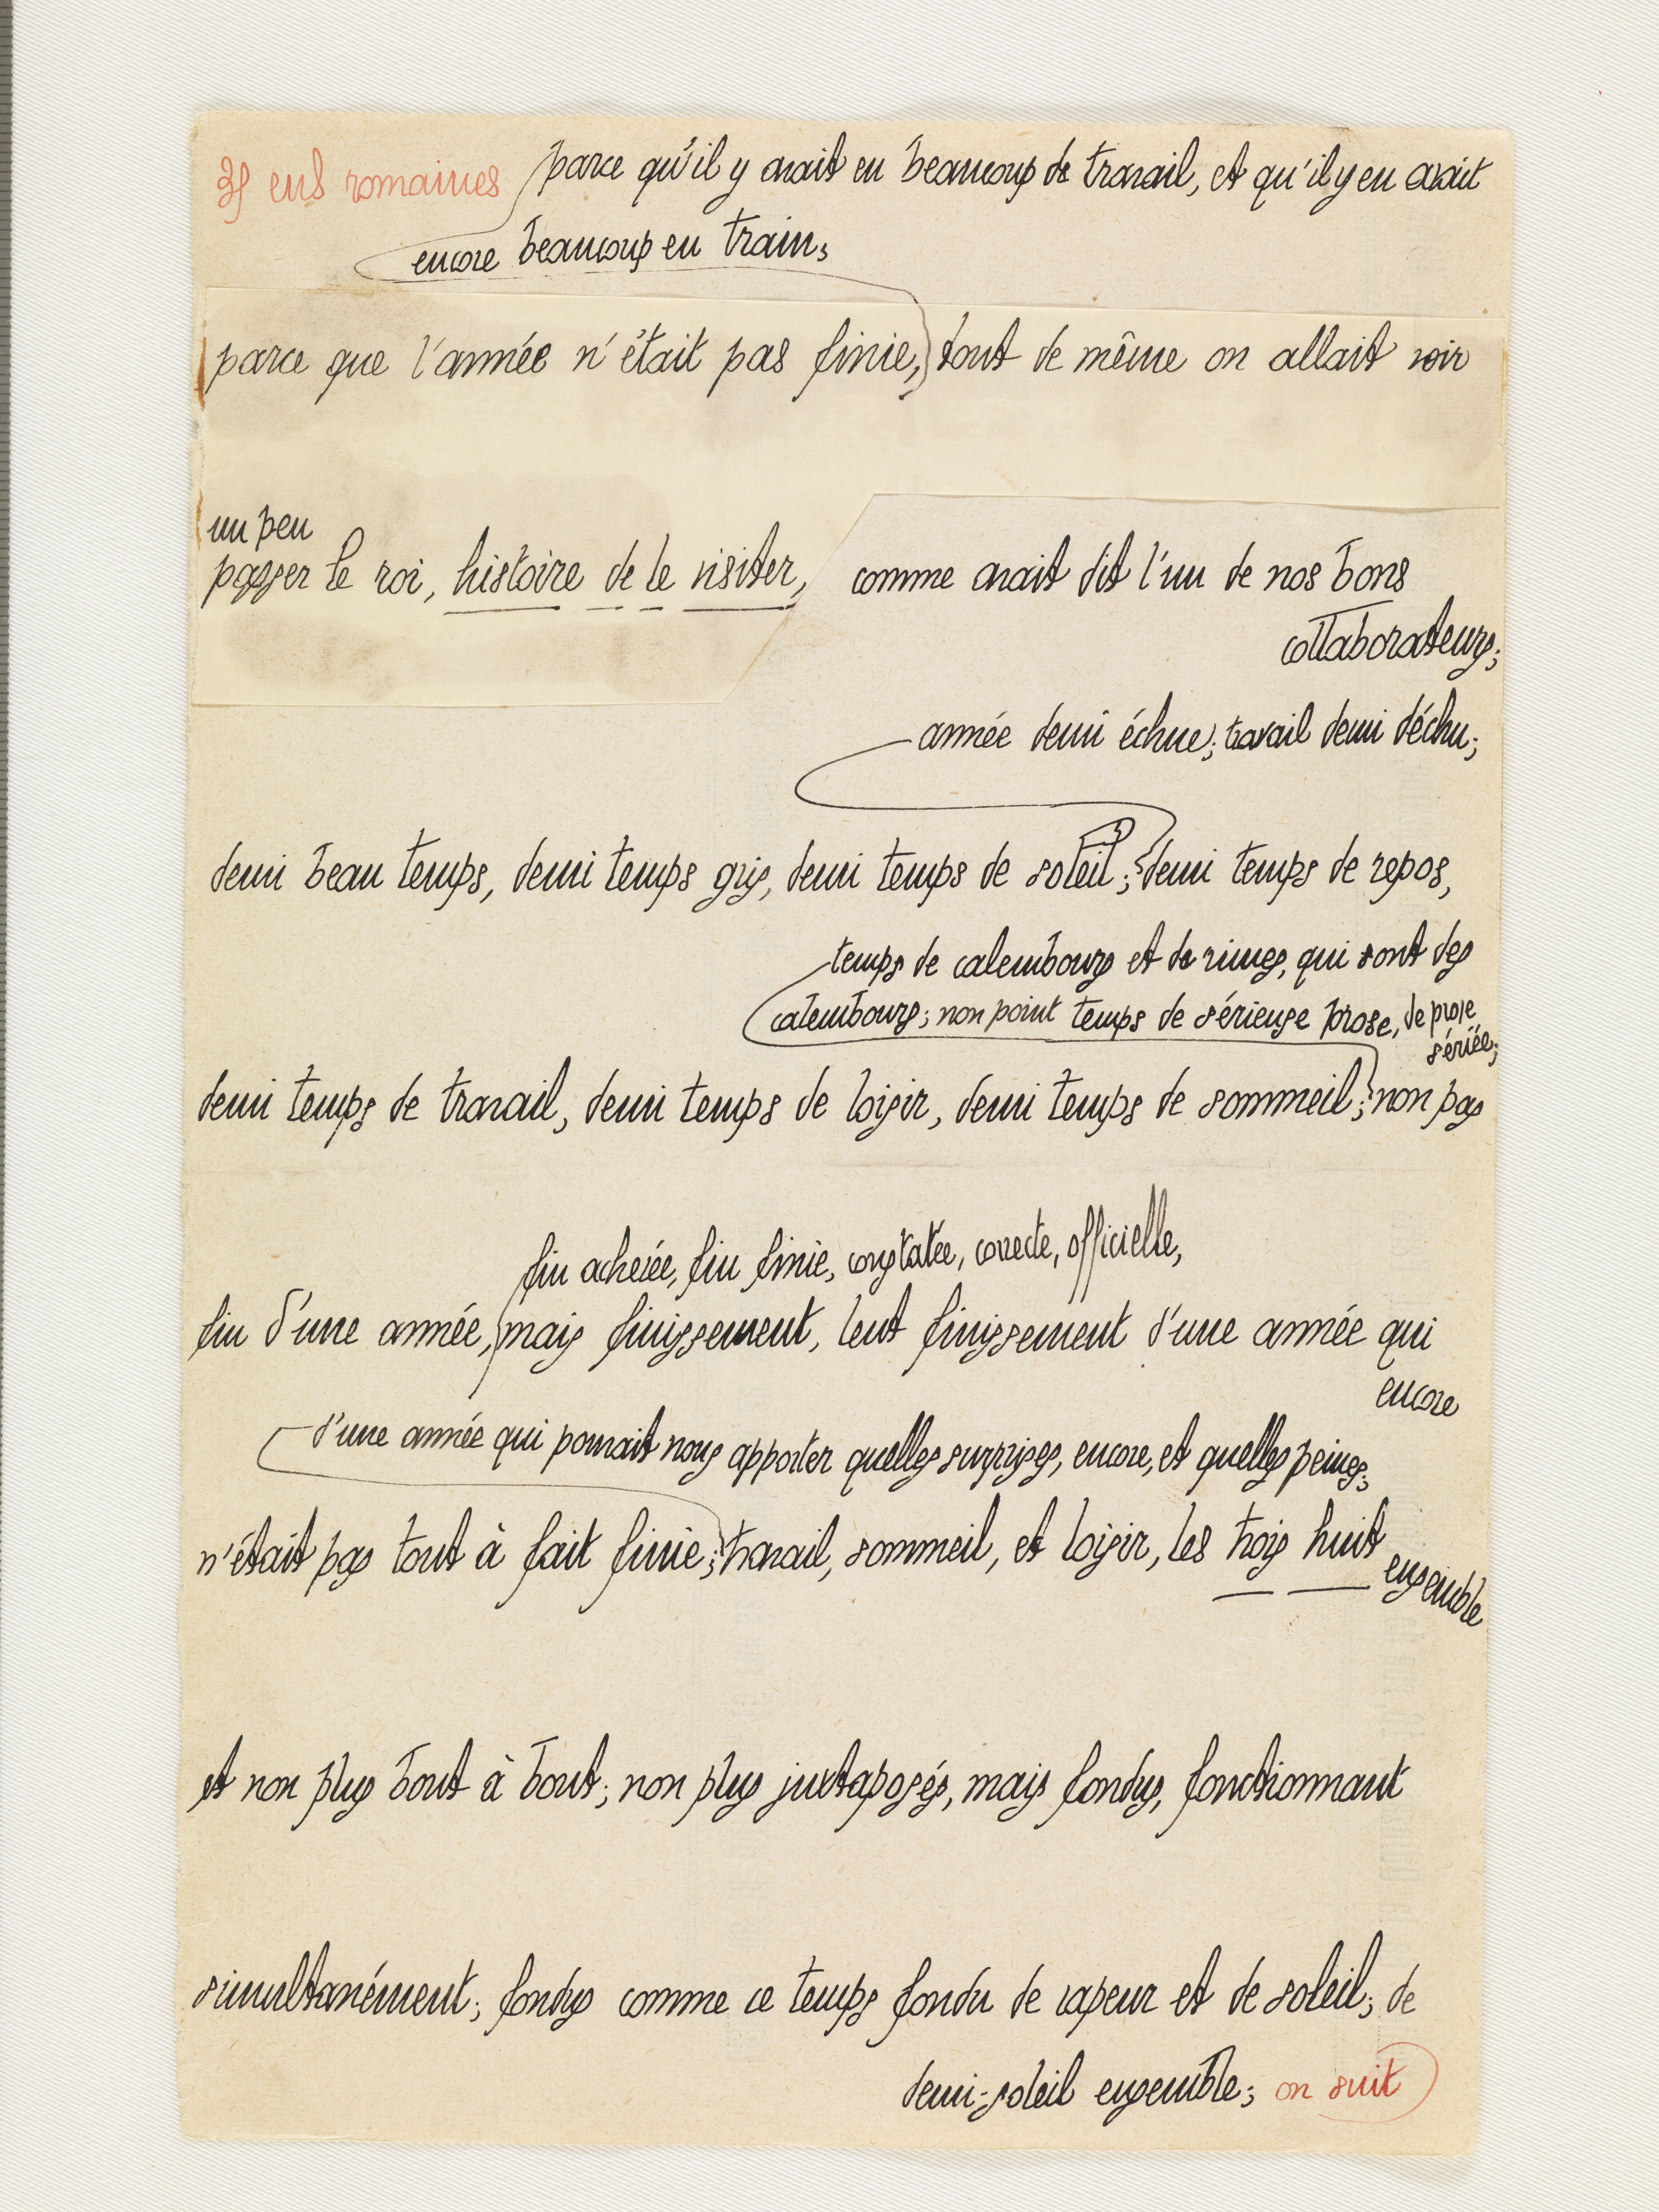 ens romaines parce qu'il y avait eu beaucoup de travail, et qu'il y en avait
encore beaucoup en train;
parce que l'année n'était pas finie, tout de même on allait voir
un peu
passer le roi, histoire de le visiter, comme avait dit l'un de nos bons
collaborateurs;
année demi échue; travail demi déchu;
demi beau temps, demi temps gris, demi temps de soleil; demi temps de repos,
temps de calembours et de rimes, qui sont des
calembours; non point temps de sérieuse prose, de prose
sériée;
demi temps de travail, demi temps de loisir, demi temps de sommeil; non pas
fin achevée, fin finie, constatée, correcte, officielle,
fin d'une année, mais finissement, lent finissement d'une année qui
encore
d'une année qui pouvait nous apporter quelles surprises, encore, et quelles peines;
n'était pas tout à fait finie; travail, sommeil, et loisir, les trois huit
ensemble
et non plus bout à bout; non plus juxtaposés, mais fondus, fonctionnant
simultanément; fondus comme ce temps fondu de vapeur et de soleil; de
demi-soleil ensemble; on suit